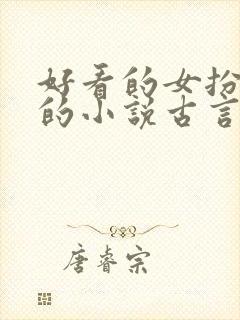 好看的女扮
的小说古言
唐睿宗